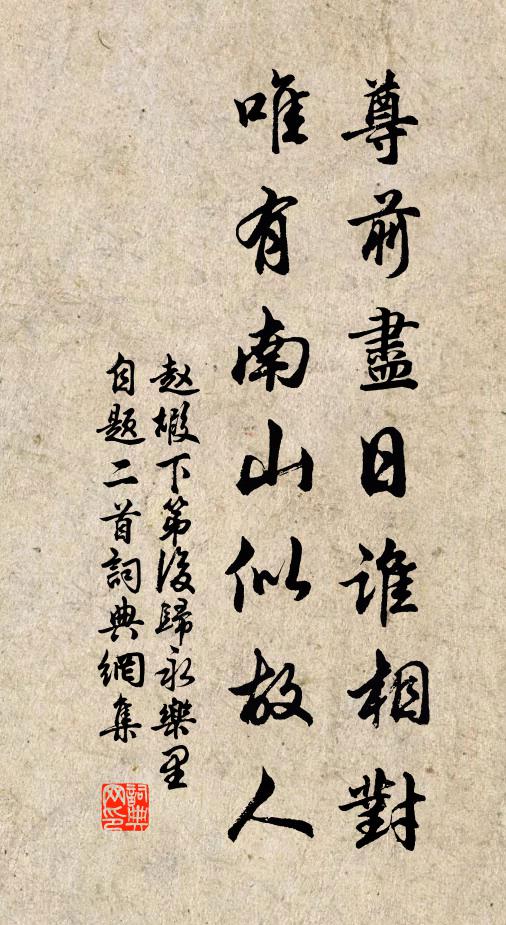 尊前盡日誰相對
唯有南山似故人
赵嘏下第後歸永樂里
自题二首詞典網集
詞典
网印